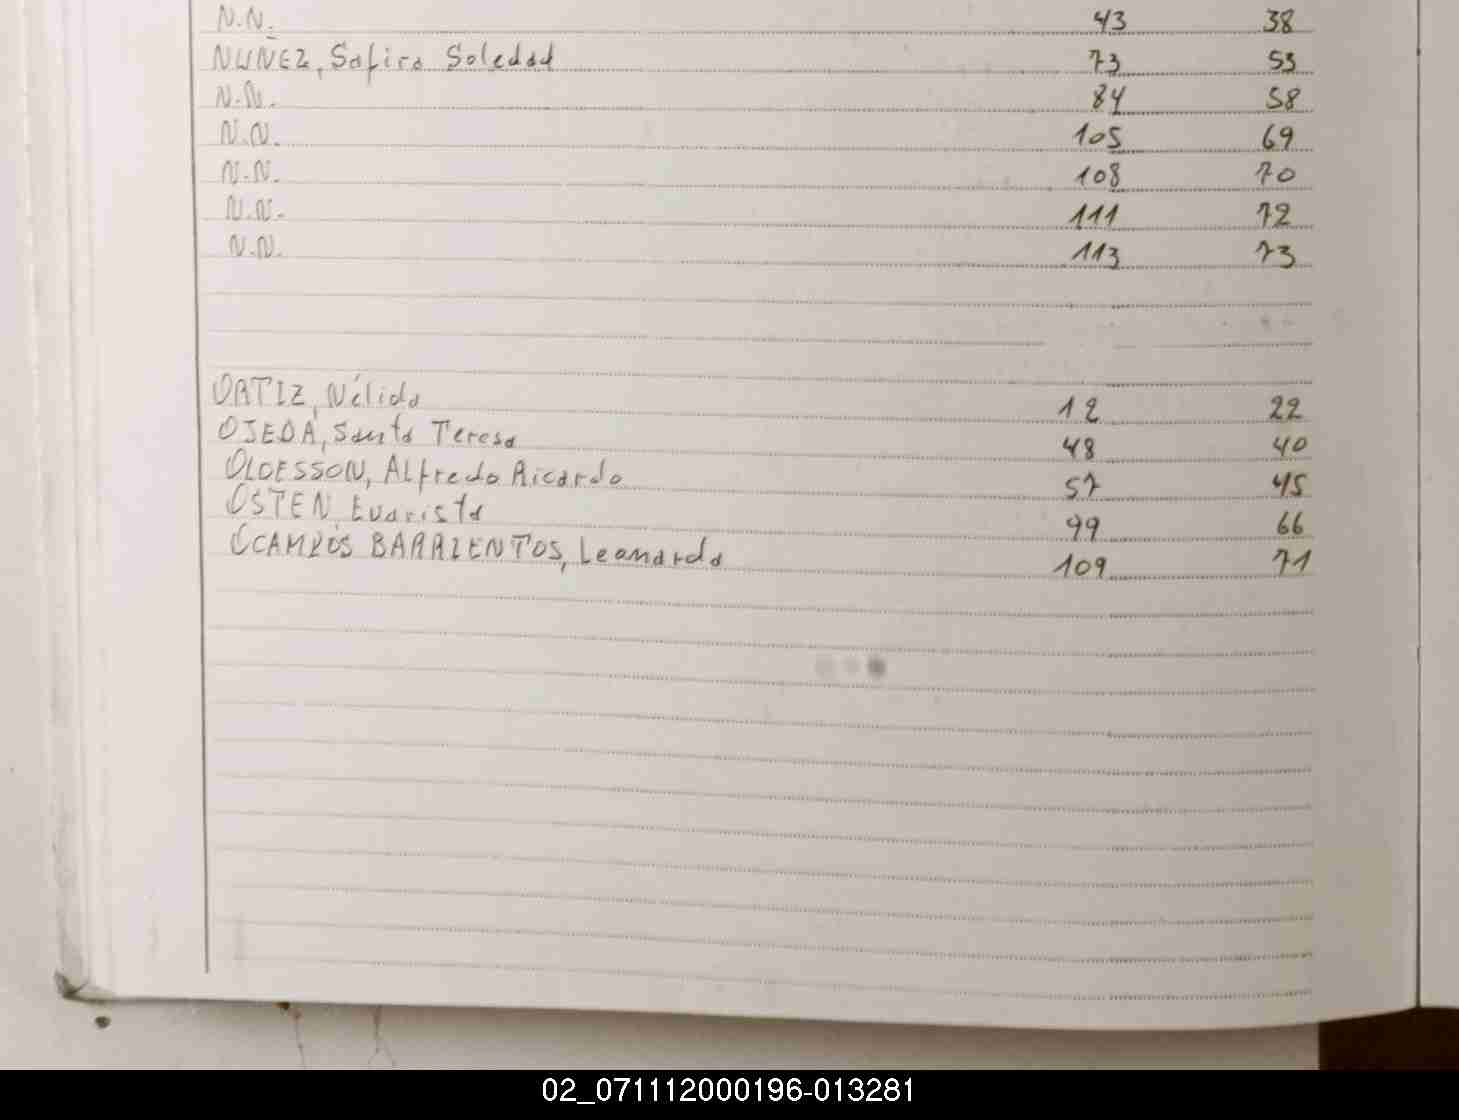 N.N. 43 38
NUÑEZ, Safira Soledad 73 53
N.N. 84 58
N.N. 105 69
N.N. 108 70
N.N. 111 72
N.N. 113 73
ORTIZ, Nélida 12 22
OJEDA, Santa Teresa 48 40
OLOESSON, Alfredo Ricardo 57 45
OSTEN Evarista 99 66
OCAMPOS BARRIENTOS, Leonarda 109 71
02_071112000196-013281